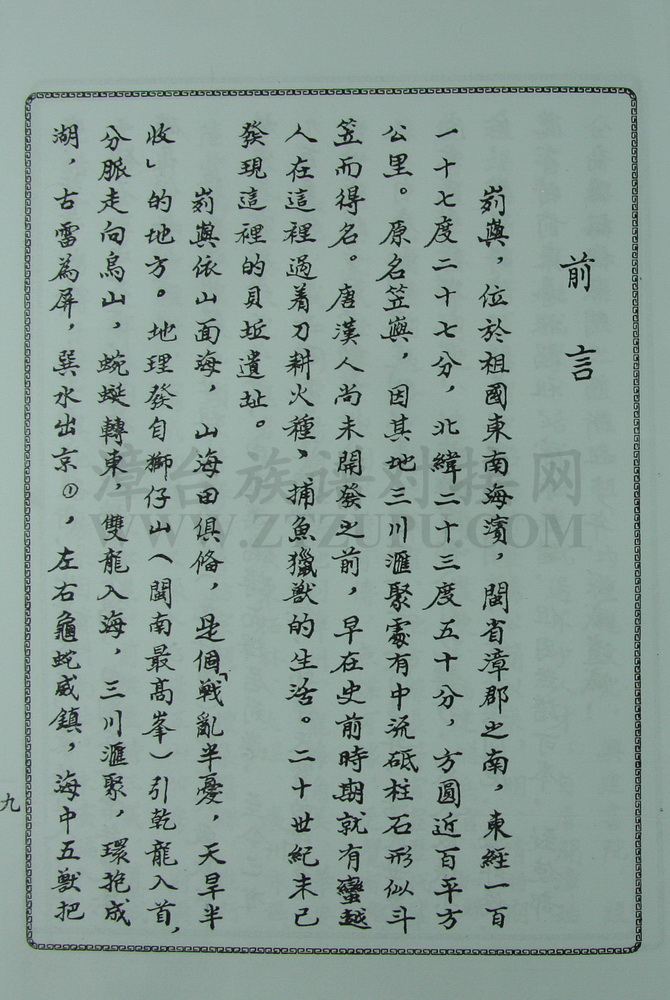 前言
莿嶼，位於祖國東南海濱，閩省漳郡之南，東經一百
一十七度二十七分，北緯二十三度五十分，方圓近百平方
公里。原名笠嶼，因其地三川滙聚處有中流砥柱石形似斗
笠而得名。唐漢人尚未開發之前，早在史前時期就有蠻越
人在這裡過着刀耕火種、捕魚獵獸的生活。二十世紀末已
發現這裡的貝坵遺址。
莿嶼依山面海，山海田俱俻，是個「戰亂半憂，天旱半
收」的地方。地理發自獅仔山（閩南最高峯）引乾龍入首，
分脈走向烏山，蜿蜒轉東，雙龍入海，三川滙聚，環抱成
湖，古雷為屏，巽水出京①，左右龜蛇威鎮，海中五獸把
九
漳台族谱对接网
WWW.ZTZUPU.COM